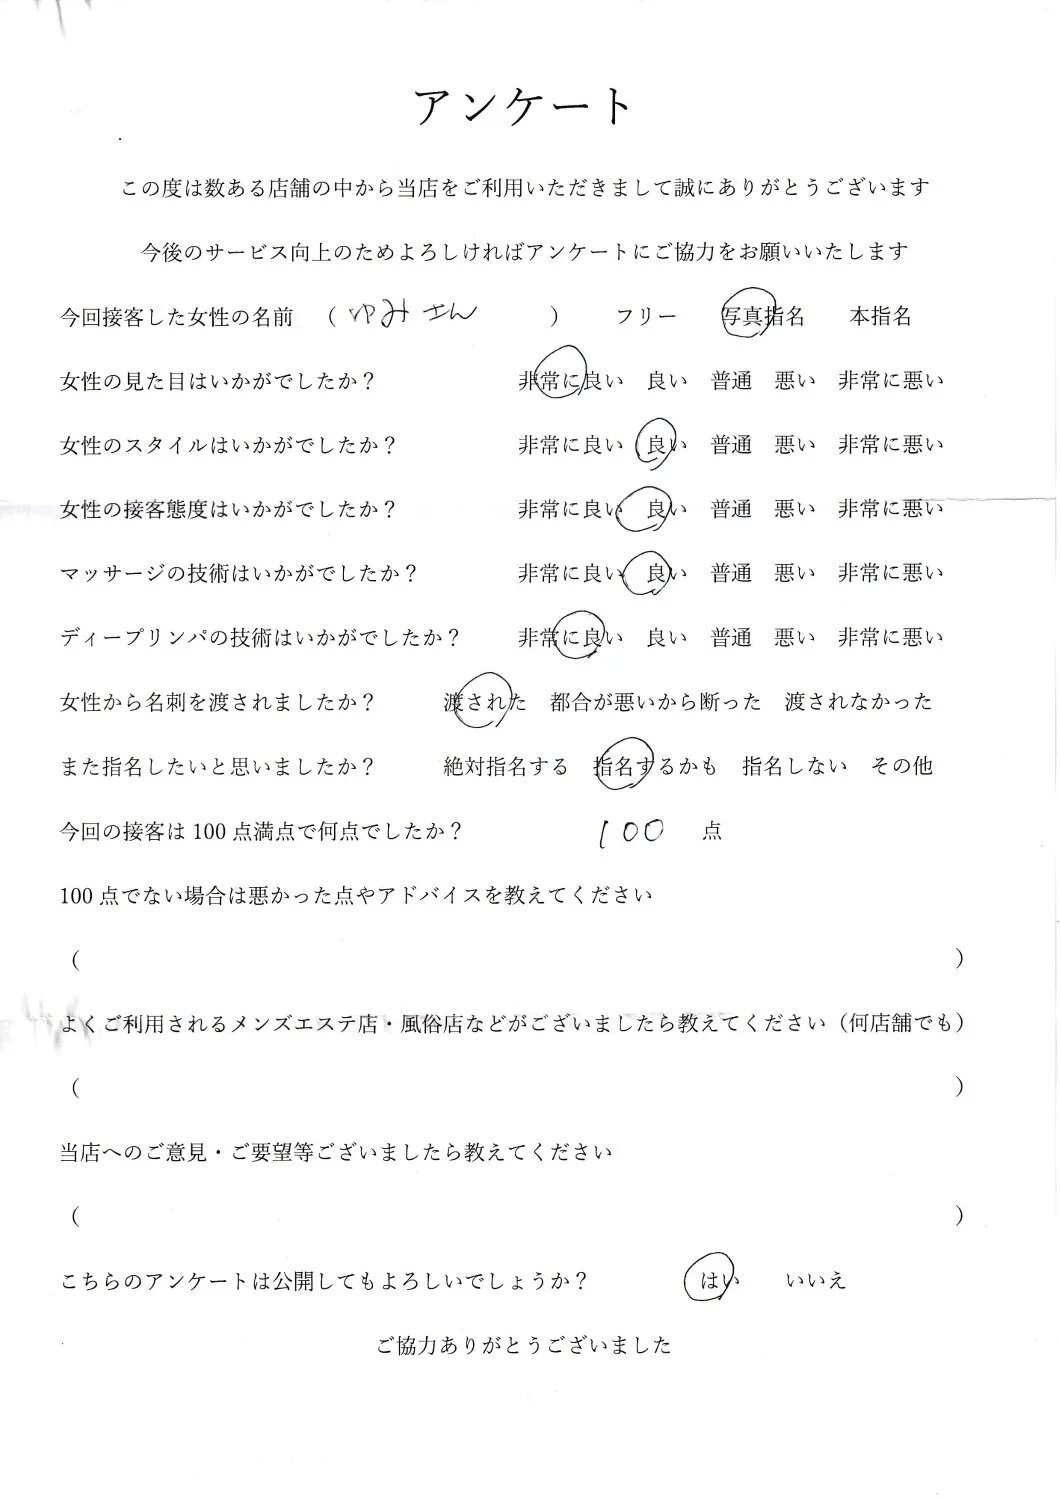 アンケート
この度は数ある店舗の中から当店をご利用いただきまして誠にありがとうございます
今後のサービス向上のためよろしければアンケートにご協力をお願いいたします
今回接客した女性の名前 （ ゆみさん ） フリー 写真指名 本指名
女性の見た目はいかがでしたか？ 非常に良い 良い 普通 悪い 非常に悪い
女性のスタイルはいかがでしたか？ 非常に良い 良い 普通 悪い 非常に悪い
女性の接客態度はいかがでしたか？ 非常に良い 良い 普通 悪い 非常に悪い
マッサージの技術はいかがでしたか？ 非常に良い 良い 普通 悪い 非常に悪い
ディープリンパの技術はいかがでしたか？ 非常に良い 良い 普通 悪い 非常に悪い
女性から名刺を渡されましたか？ 渡された 都合が悪いから断った 渡されなかった
また指名したいと思いましたか？ 絶対指名する 指名するかも 指名しない その他
今回の接客は 100 点満点で何点でしたか？ 100 点
100 点でない場合は悪かった点やアドバイスを教えてください
（ ）
よくご利用されるメンズエステ店・風俗店などがございましたら教えてください（何店舗でも）
（ ）
当店へのご意見・ご要望等ございましたら教えてください
（ ）
こちらのアンケートは公開してもよろしいでしょうか？ はい いいえ
ご協力ありがとうございました